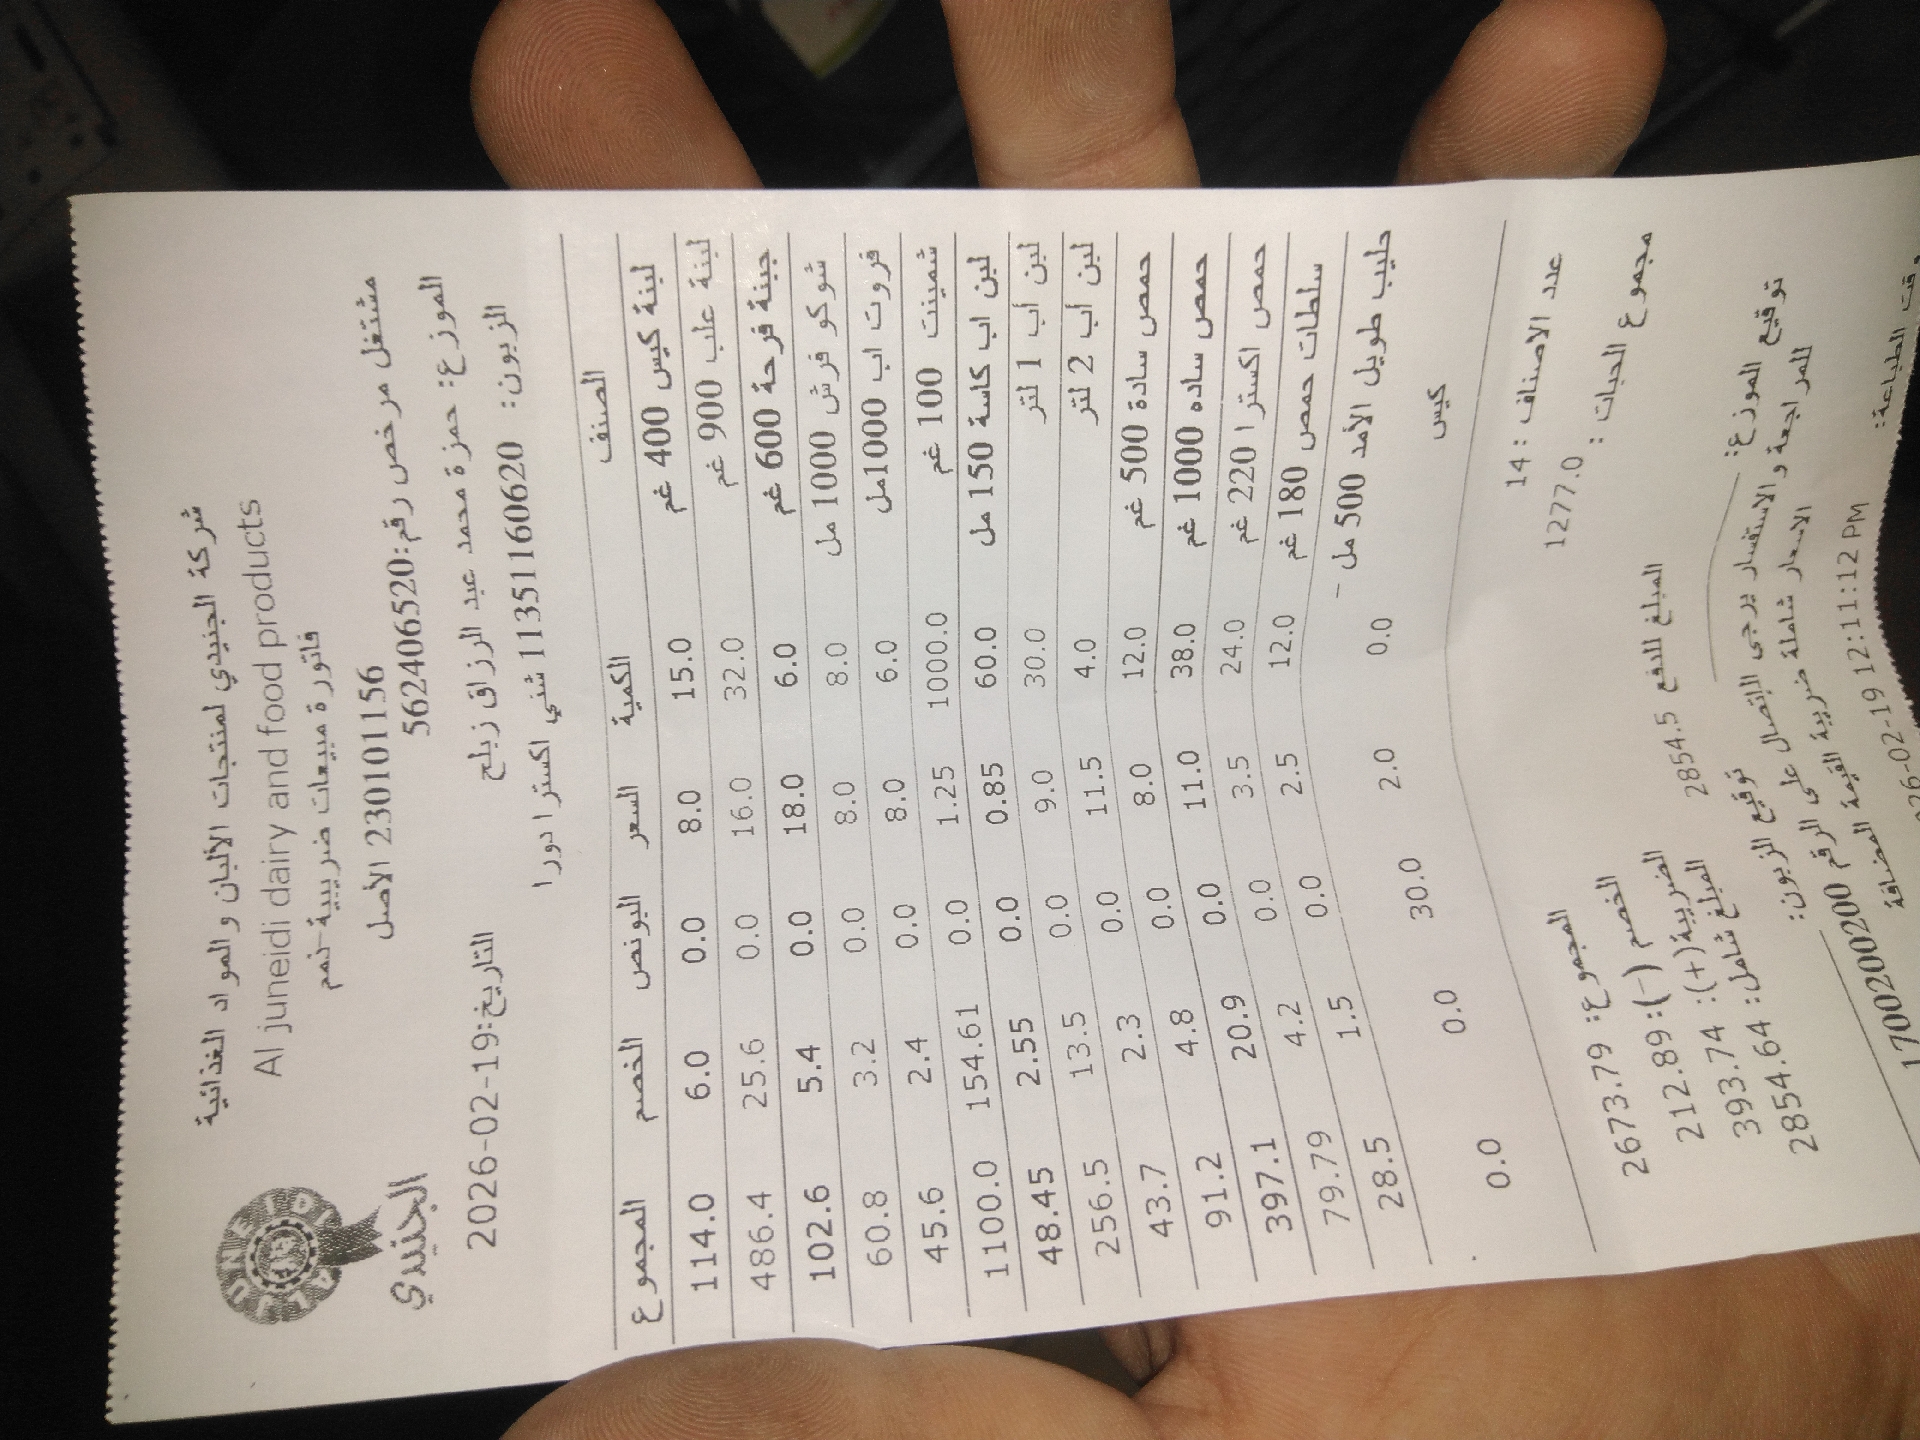 شركة الجنيدي لمنتجات الألبان والمواد الغذائية
Al juneidi dairy and food products
AL JUNEIDI
الجنيدي
فاتورة مبيعات ضريبية-ذمم
230101156 الأصل
مشتغل مرخص رقم:562406520
الموزع: حمزة محمد عبد الرزاق زبلح
التاريخ:2026-02-19
الزبون: 11351160620 شني اكسترا دورا
الصنف الكمية السعر البونص الخصم المجموع
لبنة كيس 400 غم 15.0 8.0 0.0 6.0 114.0
لبنة علب 900 غم 32.0 16.0 0.0 25.6 486.4
جبينة فرحة 600 غم 6.0 18.0 0.0 5.4 102.6
شوكو فرش 1000 مل 8.0 8.0 0.0 3.2 60.8
فروت اب 1000مل 6.0 8.0 0.0 2.4 45.6
شمينت 100 غم 1000.0 1.25 0.0 154.61 1100.0
لبن اب كاسة 150 مل 60.0 0.85 0.0 2.55 48.45
لبن أب 1 لتر 30.0 9.0 0.0 13.5 256.5
لبن أب 2 لتر 4.0 11.5 0.0 2.3 43.7
حمص سادة 500 غم 12.0 8.0 0.0 4.8 91.2
حمص ساده 1000 غم 38.0 11.0 0.0 20.9 397.1
حمص اكسترا 220 غم 24.0 3.5 0.0 4.2 79.79
سلطات حمص 180 غم 12.0 2.5 0.0 1.5 28.5
حليب طويل الأمد 500 مل - كيس 0.0 2.0 30.0 0.0 0.0
عدد الاصناف : 14
مجموع الحبات : 1277.0
المجموع: 2673.79
الخصم (-): 212.89
الضريبة(+): 393.74
المبلغ شامل: 2854.64
المبلغ للدفع 2854.5
توقيع الموزع:
توقيع الزبون:
للمراجعة والاستفسار يرجى الاتصال على الرقم 1700200200
الاسعار شاملة ضريبة القيمة المضافة
وقت الطباعة: 026-02-19 12:11:12 PM